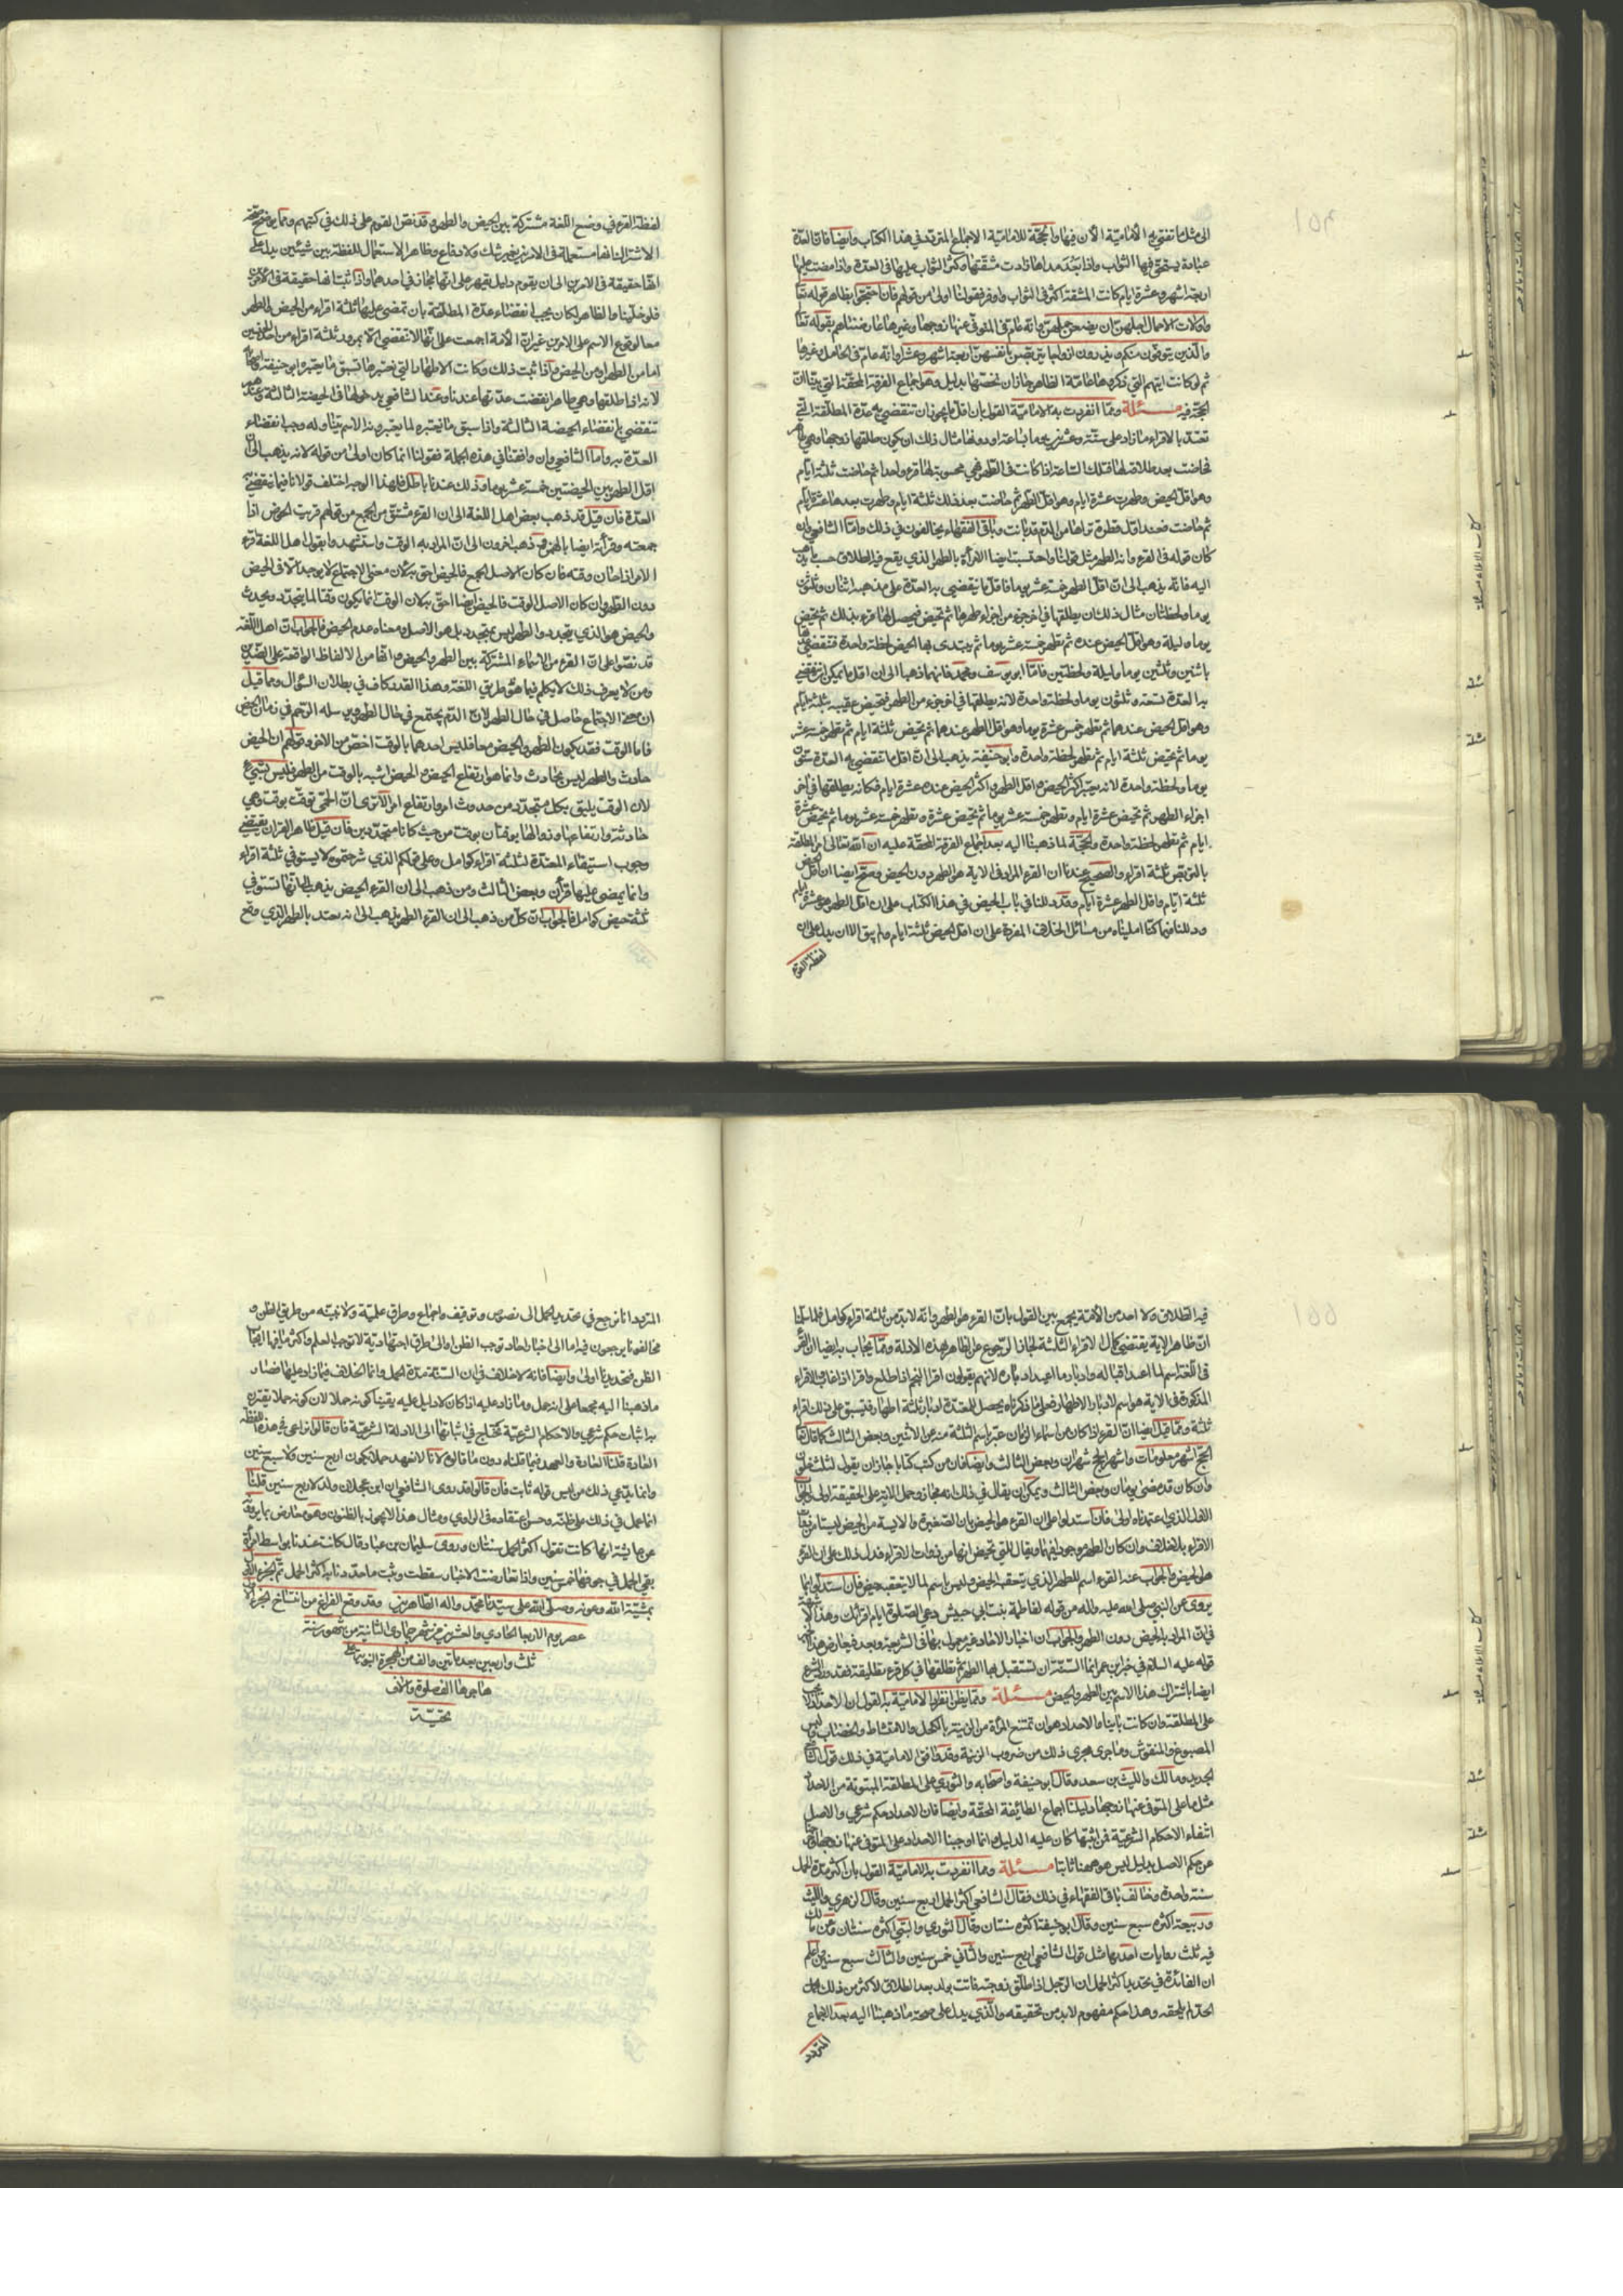 الى مثل ما تفتي به الامامية الآن فيها والحجة للامامية الاجماع المتردد في هذا الكتاب وايضا فان العدة
عبادة يستحق فيها الثواب واذا بعد مداها زادت مشقتها وكثر الثواب عليها في العدة واذا مضت عليها
اربعة اشهر وعشرة ايام كانت المشقة اكثر في الثواب واوفر فقولنا اولى من قولهم فان احتجوا بظاهر قوله تعا
واولات الاحمال اجلهن ان يضعن حملهن وانه عام في المتوفى عنها زوجها وغيرها عارضناهم بقوله تعا
والذين يتوفون منكم ويذرون ازواجا يتربصن بانفسهن اربعة اشهر وعشرا وانه عام في الحامل وغيرها
ثم لو كانت ايتهم التي ذكروها عامة الظاهر جاز ان نخصها بدليل وهو اجماع الفرقة المحقة التي بينا ان
الحجة فيه مسئلة ومما انفردت به الامامية القول بان اقل ما يجوز ان تنقضي به عدة المطلقة التي
تعتد بالاقراء ما زاد على ستة وعشرين يوما بساعة او دونها مثال ذلك ان يكون طلقها زوجها وهي طاهر
فحاضت بعد طلاقه لها فتلك الساعة اذا كانت في الطهر فهي محسوبة لها قرء واحدا ثم حاضت ثلثة ايام
وهو اقل الحيض وطهرت عشرة ايام وهو اقل الطهر ثم حاضت بعد ذلك ثلثة ايام وطهرت بعدها عشرة ايام
ثم حاضت فعند اقل قطرة تراها من الدم قد بانت وباقي الفقهاء يخالفون في ذلك واما الشافعي وان
كان قوله في القرء وانه الطهر مثل قولنا واحتسبت ايضا المرأة بالطهر الذي يقع فيه الطلاق حسب ما يذهب
اليه فانه يذهب الى ان اقل الطهر خمسة عشر يوما فاقل ما ينقضي به العدة على مذهبه اثنان وثلثون
يوما ولحظتان مثال ذلك ان يطلقها في اخر جزء من اجزاء طهرها ثم تحيض فيحصل لها قرء بذلك ثم تحيض
يوما وليلة وهو اقل الحيض عنده ثم تطهر خمسة عشر يوما ثم يبتدى بها الحيض لحظة واحدة فتنقضي عدتها
باثنين وثلثين يوما وليلة ولحظتين فاما ابو يوسف ومحمد فانهما ذهبا الى ان اقل ما يمكن ان تنقضي
به العدة تسعة وثلثون يوما ولحظة واحدة لانه يطلقها في اخر جزء من الطهر فتحيض عقيبه ثلثة ايام
وهو اقل الحيض عندهما ثم تطهر خمس عشرة يوما وهو اقل الطهر عندهما ثم تحيض ثلثة ايام ثم تطهر خمسة عشر
يوما ثم تحيض ثلثة ايام ثم تطهر لحظة واحدة وابو حنيفة يذهب الى ان اقل ما تنقضي به العدة ستون
يوما ولحظة واحدة لانه يعتبر اكثر الحيض واقل الطهر واكثر الحيض عنده عشرة ايام فكانه يطلقها في اخر
اجزاء الطهر ثم تحيض عشرة ايام وتطهر خمسة عشر يوما ثم تحيض عشرة وتطهر خمسة عشر يوما ثم تحيض عشرة
ايام ثم تطهر لحظة واحدة والحجة لما ذهبنا اليه بعد اجماع الفرقة المحقة عليه ان الله تعالى امر المطلقة
بالتربص ثلثة اقراء والصحيح عندنا ان القرء المراد في الاية هو الطهر دون الحيض وصح ايضا ان اقل الحيض
ثلثة ايام واقل الطهر عشرة ايام وقد دللنا في باب الحيض في هذا الكتاب على ان اقل الطهر هو عشرة ايام
ودللنا فيما كنا امليناه من مسائل الخلاف المفردة على ان اقل الحيض ثلثة ايام ولم يبق الا ان يدل على ان
لفظة القرء
لفظة القرء في وضع اللغة مشتركة بين الحيض والطهر وقد نص القوم على ذلك في كتبهم ومما يوضح صحة
الاشتراك انها مستعملة في الامرين بغير شك ولا دفاع وظاهر الاستعمال للفظة بين شيئين يدل على
انها حقيقة في الامرين الى ان يقوم دليل يقهر على انها مجاز في احدهما واذا ثبت انها حقيقة في الامرين
فلو خلينا والظاهر لكان يجب انقضاء عدة المطلقة بان تمضي عليها ثلثة اقراء من الحيض والطهر
معا لوقوع الاسم على الامرين غير ان الامة اجمعت على انها لا تنقضي الا بمرور ثلثة اقراء من احد الجنسين
اما من الطهر او من الحيض واذا ثبت ذلك وكانت الاطهار التي نعتبرها تسبق ما يعتبره ابو حنيفة واصحابه
لانه اذا طلقها وهي طاهر انقضت عدتها عندنا وعند الشافعي بدخولها في الحيضة الثالثة وعندهم
تنقضي بانقضاء الحيضة الثالثة واذا سبق ما نعتبره لما يعتبرونه الاسم يتناوله وجب انقضاء
العدة به واما الشافعي وان وافقنا في هذه الجملة فقولنا انما كان اولى من قوله لانه يذهب الى ان
اقل الطهر بين الحيضتين خمسة عشر يوما وذلك عندنا باطل فلهذا الوجه اختلف قولانا فيما تنقضي به
العدة فان قيل قد ذهب بعض اهل اللغة الى ان القرء مشتق من الجمع من قولهم قريت الحوض اذا
جمعته وقرأته ايضا بالهمزة وذهب اخرون الى ان المراد به الوقت واستشهدوا بقول اهل اللغة اقرء
الامر اذا حان وقته فان كان الاصل الجمع فالحيض احق به لان معنى الاجتماع لا يوجد الا في الحيض
دون الطهر وان كان الاصل الوقت فالحيض ايضا احق به لان الوقت انما يكون وقتا لما يتجدد ويحدث
والحيض هو الذي يتجدد والطهر ليس بمتجدد بل هو الاصل ومعناه عدم الحيض فالجواب ان اهل اللغة
قد نصوا على ان القرء من الاسماء المشتركة بين الطهر والحيض وانها من الالفاظ الواقعة على الضدين
ومن لا يعرف ذلك لا يكلم فيما هو طريق اللغة وهذا القدر كاف في بطلان السؤال ومما قيل
ان معنى الاجتماع حاصل في حال الطهر لان الدم يجتمع في حال الطهر ويرسله الرحم في زمان الحيض
فاما الوقت فقد يكون الطهر والحيض معا فليس احدهما بالوقت اخص من الاخر وقولهم ان الحيض
حادث والطهر ليس بحادث وانما هو ارتفاع الحيض والحيض اشبه بالوقت من الطهر فليس بشيء
لان الوقت يليق بكل متجدد من حدوث امر وارتفاع امر الا ترى ان الحمى توقت بوقت وهي
حادثة وارتفاعها وزوالها يوقتان بوقت من حيث كانا متجددين فان قيل ظاهر القران يقتضي
وجوب استيفاء المعتدة لثلثة اقراء كوامل وعلى قولكم الذي شرحتموه لا يستوفي ثلثة اقراء
وانما يمضي عليها قرآن وبعض الثالث ومن ذهب الى ان القرء الحيض يذهب الى انها تستوفي
ثلثة حيض كوامل فالجواب ان كل من ذهب الى ان القرء الطهر يذهب الى انه يعتد بالطهر الذي وقع
فيه الطلاق ولا احد من الامة يجمع بين القول بان القرء هو الطهر وانه لابد من ثلثة اقراء كوامل فلو سلمنا
ان ظاهر الاية يقتضي كمال الاقراء الثلثة لجاز الرجوع عن الظاهر بهذه الادلة ومما يجاب به ايضا ان القرء
في اللغة اسم لما اعتيد اقباله وادبار ما اعتيد ادباره لانهم يقولون اقرأ النجم اذا طلع واقرأ اذا غاب والاقراء
المذكورة في الاية هو اسم لادبار الاطهار فعلى ما ذكرناه يحصل للمعتدة ادبار ثلثة اطهار فتستوفي على ذلك اقراء
ثلثة ومما قيل ايضا ان القرء اذا كان من اسماء الزمان عبر باسم الثلثة منه عن الاثنين وبعض الثالث كما قال تعا
الحج اشهر معلومات واشهر الحج شهران وبعض الثالث وايضا فان من كتب كتابا جاز ان يقول لثلث خلون
وان كان قد مضى يومان وبعض الثالث ويمكن ان يقال في ذلك انه مجاز وحمل الاية على الحقيقة اولى والجواب
الاول الذي اعتمدناه اولى فان استدلوا على ان القرء هو الحيض بان الصغيرة والايسة من الحيض ليستا من ذوات
الاقراء بلا خلاف وان كان الطهر موجودا فيهما ويقال للتي تحيض انها من ذوات الاقراء فدل ذلك على ان القرء
هو الحيض والجواب عنه القرء اسم للطهر الذي يتعقب الحيض وليس باسم لما لا يتعقبه حيض فان استدلوا بما
يروى عن النبي صلى الله عليه واله من قوله لفاطمة بنت ابي حبيش دعي الصلوة ايام اقرائك وهذا لا شبهة
في ان المراد به الحيض دون الطهر والجواب ان اخبار الاحاد غير معمول بها في الشريعة وبعد فيعارض هذا الخبر
قوله عليه السلام في خبر ابن عمر انما السنة ان تستقبل بها الطهر ثم تطلقها في كل قرء تطليقة فقد ورد الشرع
ايضا باشتراك هذا الاسم بين الطهر والحيض مسئلة ومما يظن انفراد الامامية به القول ان الاحداد لا يجب
على المطلقة وان كانت باينا والاحداد هو ان تمتنع المرأة من الزينة بالكحل والامتشاط والخضاب ولبس
المصبوغ والمنقوش وما جرى مجرى ذلك من ضروب الزينة وقد وافق الامامية في ذلك قول الشافعي
الجديد ومالك والليث بن سعد وقال ابو حنيفة واصحابه والثوري على المطلقة المبتوتة من الاحداد
مثل ما على المتوفى عنها زوجها دليلنا اجماع الطائفة المحقة وايضا فان الاحداد حكم شرعي والاصل
انتفاء الاحكام الشرعية فمن اثبتها كان عليه الدليل وانما اوجبنا الاحداد على المتوفى عنها زوجها وخرجنا
عن حكم الاصل بدليل ليس هو ههنا ثابتا مسئلة ومما انفردت به الامامية القول بان اكثر مدة الحمل
سنة واحدة وخالف باقي الفقهاء في ذلك فقال الشافعي اكثر الحمل اربع سنين وقال الزهري والليث
وربيعة اكثره سبع سنين وقال ابو حنيفة اكثره سنتان وقال الثوري والبتي اكثره سنتان وعن مالك
فيه ثلث روايات احديها مثل قول الشافعي اربع سنين والثاني خمس سنين والثالث سبع سنين واعلم
ان الفائدة في تحديد اكثر الحمل ان الرجل اذا طلق زوجته فاتت بولد بعد الطلاق لاكثر من ذلك
الحد لم يلحقه وهذا حكم مفهوم لابد من تحقيقه والذي يدل على صحة ما ذهبنا اليه بعد الاجماع
المتردد
المتردد انا نرجع في تحديد الحمل الى نصوص وتوقيف واجماع وطرق علمية ولا نثبته من طريق الظن و
مخالفونا يرجعون فيه اما الى اخبار احاد توجب الظن او الى طرق اجتهادية لا توجب العلم واكثر ما فيها ايجاب
الظن فتحديدنا اولى وايضا فانه لا خلاف في ان السنة مدة الحمل وانما الخلاف فيما زاد عليها فصار
ما ذهبنا اليه مجمعا على انه حمل وما زاد عليه اذا كان لا دليل عليه يقينا كونه حملا لان كونه حملا يقترن
به اثبات حكم شرعي والاحكام الشرعية يحتاج في اثباتها الى الادلة الشرعية فان قالوا نراعي في هذه اللفظة
العادة قلنا العادة والعهد فيما قلناه دون ما قالوه لانا لا نعهد حملا يكون اربع سنين ولا سبع سنين
وانما يدعي ذلك من ليس قوله ثابت فان قالوا قد روى الشافعي ان ابن عجلان ولد لاربع سنين قلنا
انما عمل في ذلك على ظنه وحسن اعتقاده في الراوي ومثال هذا الا يجوز بالظنون وهو معارض بما يروى
عن عايشة انها كانت تقول اكثر الحمل سنتان وروى سليمان بن عباد قال كانت عندنا بواسط امرأة
بقي الحمل في جوفها خمس سنين واذا تعارضت الاخبار سقطت وثبت ما حددنا به اكثر الحمل تم الجزء
بمشية الله وعونه وصلى الله على سيدنا محمد واله الطاهرين وقد وقع الفراغ من انتساخ الجزء
عصر يوم الاربعا الحادي والعشرين من شهر جمادى الثانية من شهور سنة
ثلث واربعين بعد ماتين والف من الهجرة النبوية على
هاجرها الف صلوة والاف
تحية